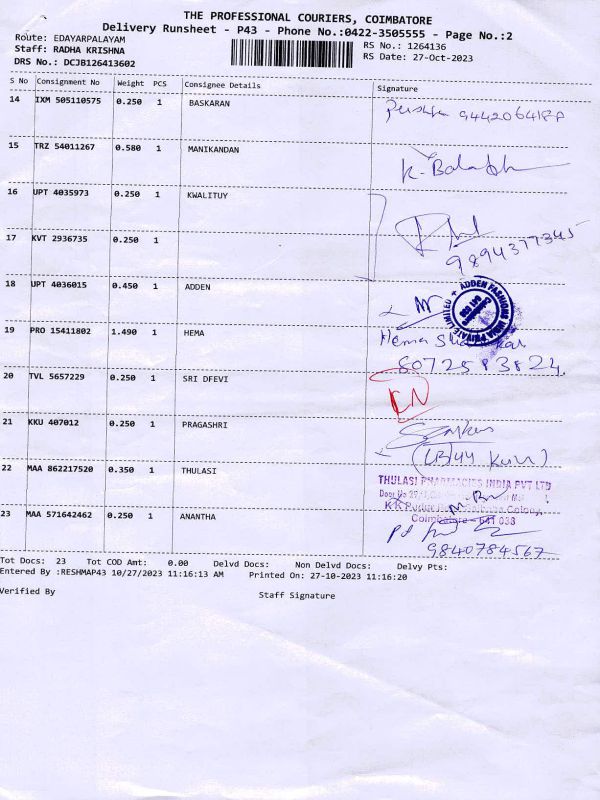 THE PROFESSIONAL COURIERS, COIMBATORE
Delivery Runsheet - P43 - Phone No.:0422-3505555 - Page No.:2
Route: EDAYARPALAYAM
RS No.: 1264136
Staff: RADHA KRISHNA
RS Date: 27-Oct-2023
DRS No.: DCJB126413602
S No Consignment No Weight PCS Consignee Details Signature
14 IXM 505110575 0.250 1 BASKARAN
15 TRZ 54011267 0.580 1 MANIKANDAN
K. Balakh
16 UPT 4035973 0.250 1 KWALITUY
17 KVT 2936735 0.250 1
9894377345
18 UPT 4036015 0.450 1 ADDEN
ADDEN FASHIONS INDIA PRIVATE LIMITED
19 PRO 15411802 1.490 1 HEMA
Hema
8072583824
20 TVL 5657229 0.250 1 SRI DFEVI
21 KKU 407012 0.250 1 PRAGASHRI
22 MAA 862217520 0.350 1 THULASI
THULASI PHARMACIES INDIA PVT LTD
Door No
Colony,
Coimbatore - 641 038
23 MAA 571642462 0.250 1 ANANTHA
9840784567
Tot Docs: 23 Tot COD Amt: 0.00 Delvd Docs: Non Delvd Docs: Delvy Pts:
Entered By :RESHMAP43 10/27/2023 11:16:13 AM Printed On: 27-10-2023 11:16:20
Verified By
Staff Signature